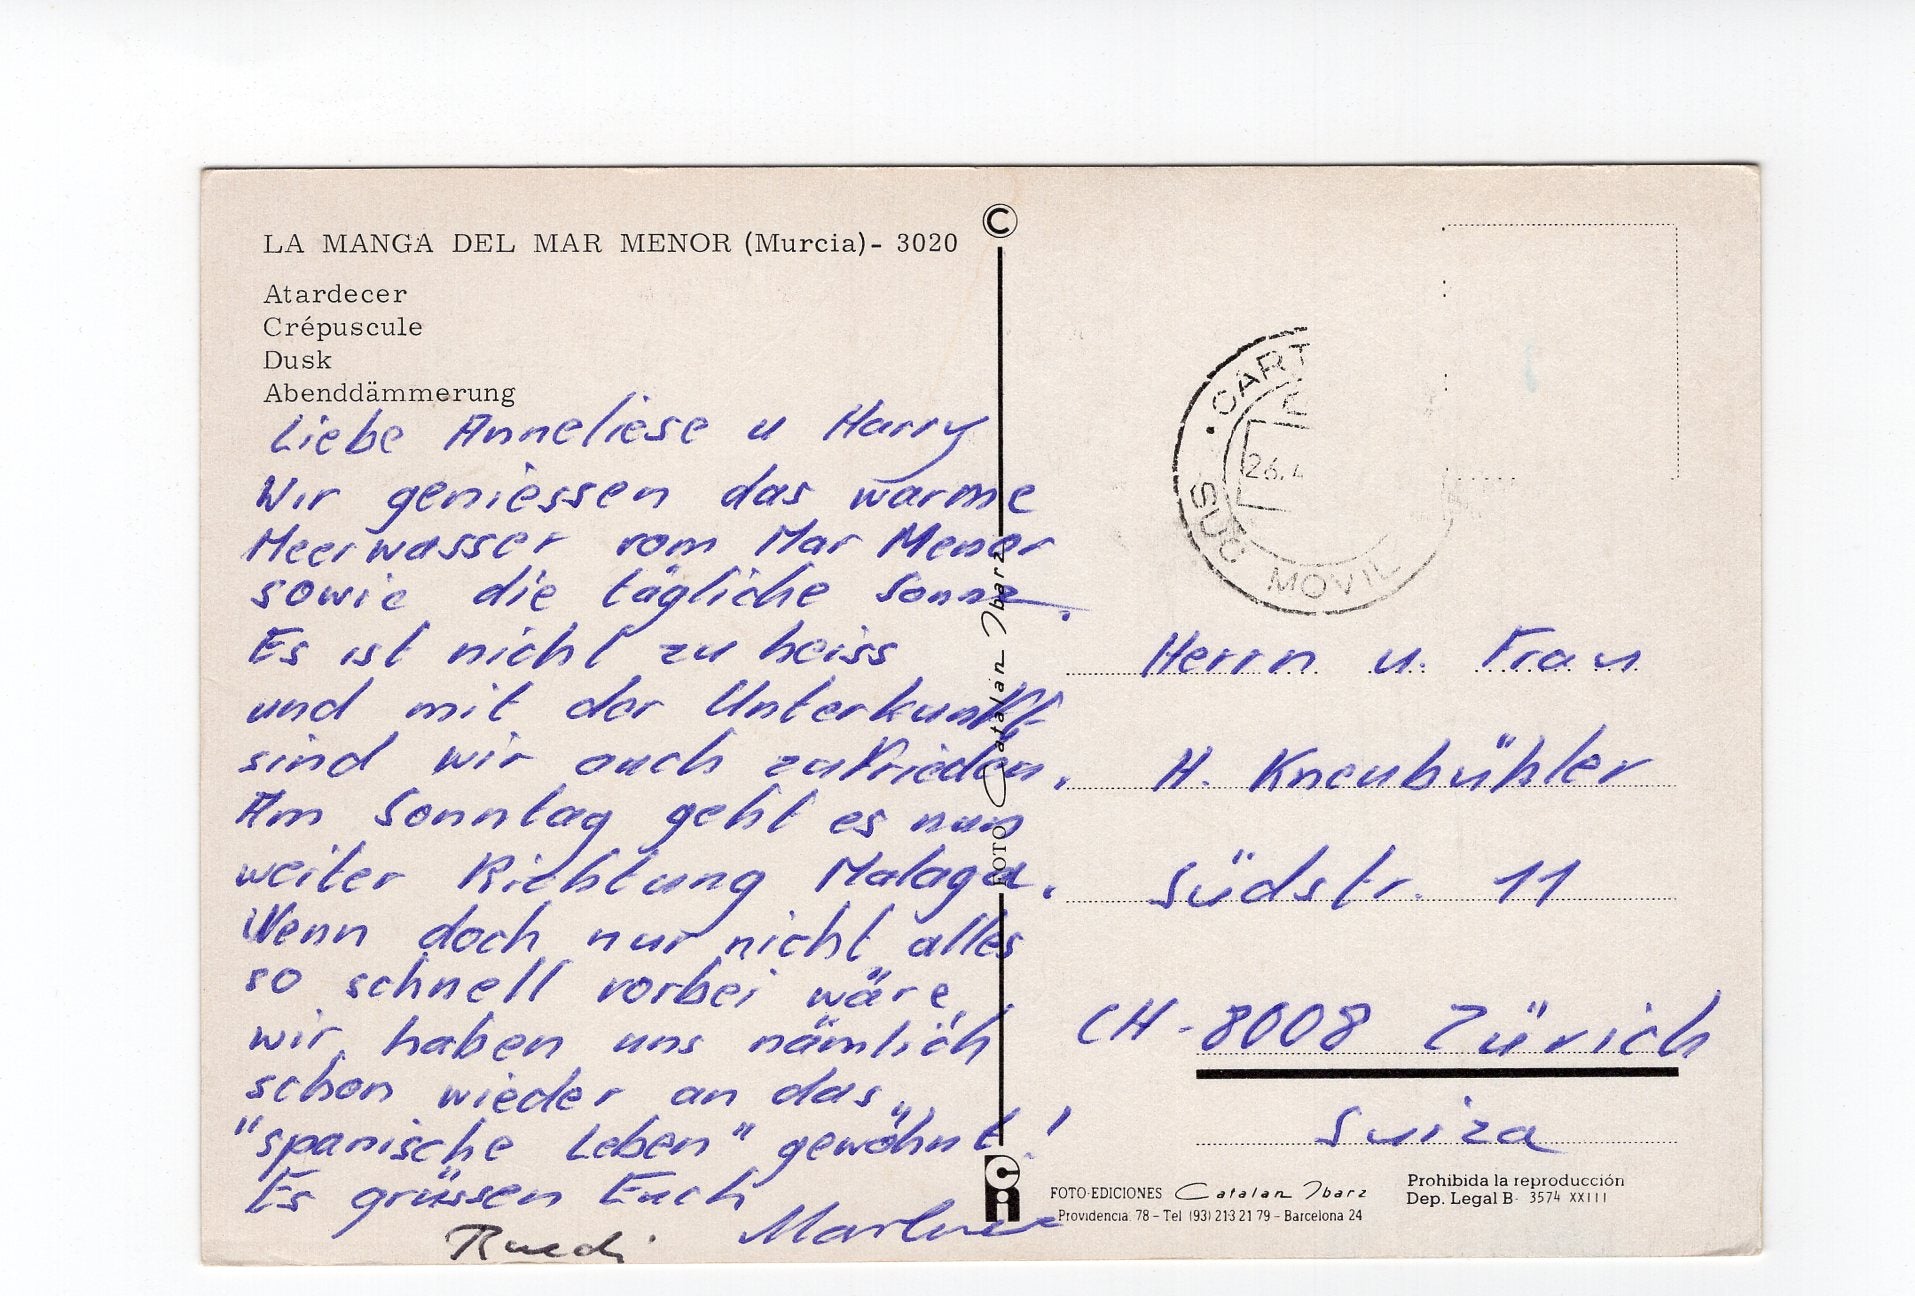 LA MANGA DEL MAR MENOR (Murcia) - 3020
Atardecer
Crépuscule
Dusk
Abenddämmerung
Liebe Anneliese u Harry
Wir geniessen das warme
Meerwasser vom Mar Menor
sowie die tägliche Sonne.
Es ist nicht zu heiss
und mit der Unterkunft
sind wir auch zufrieden.
Am Sonntag geht es nun
weiter Richtung Malaga.
Wenn doch nur nicht alles
so schnell vorbei wäre,
wir haben uns nämlich
schon wieder an das
"spanische Leben" gewöhnt!
Es grüssen Euch
Ruedi Marlene
©
FOTO Catalan Ibarz
Ci
CART
26.4
SUC MOVIL
Herrn u. Frau
H. Kneubühler
Südstr. 11
CH-8008 Zürich
Suiza
FOTO-EDICIONES Catalan Ibarz
Providencia, 78 - Tel (93) 213 21 79 - Barcelona 24
Prohibida la reproducción
Dep. Legal B- 3574 XXIII